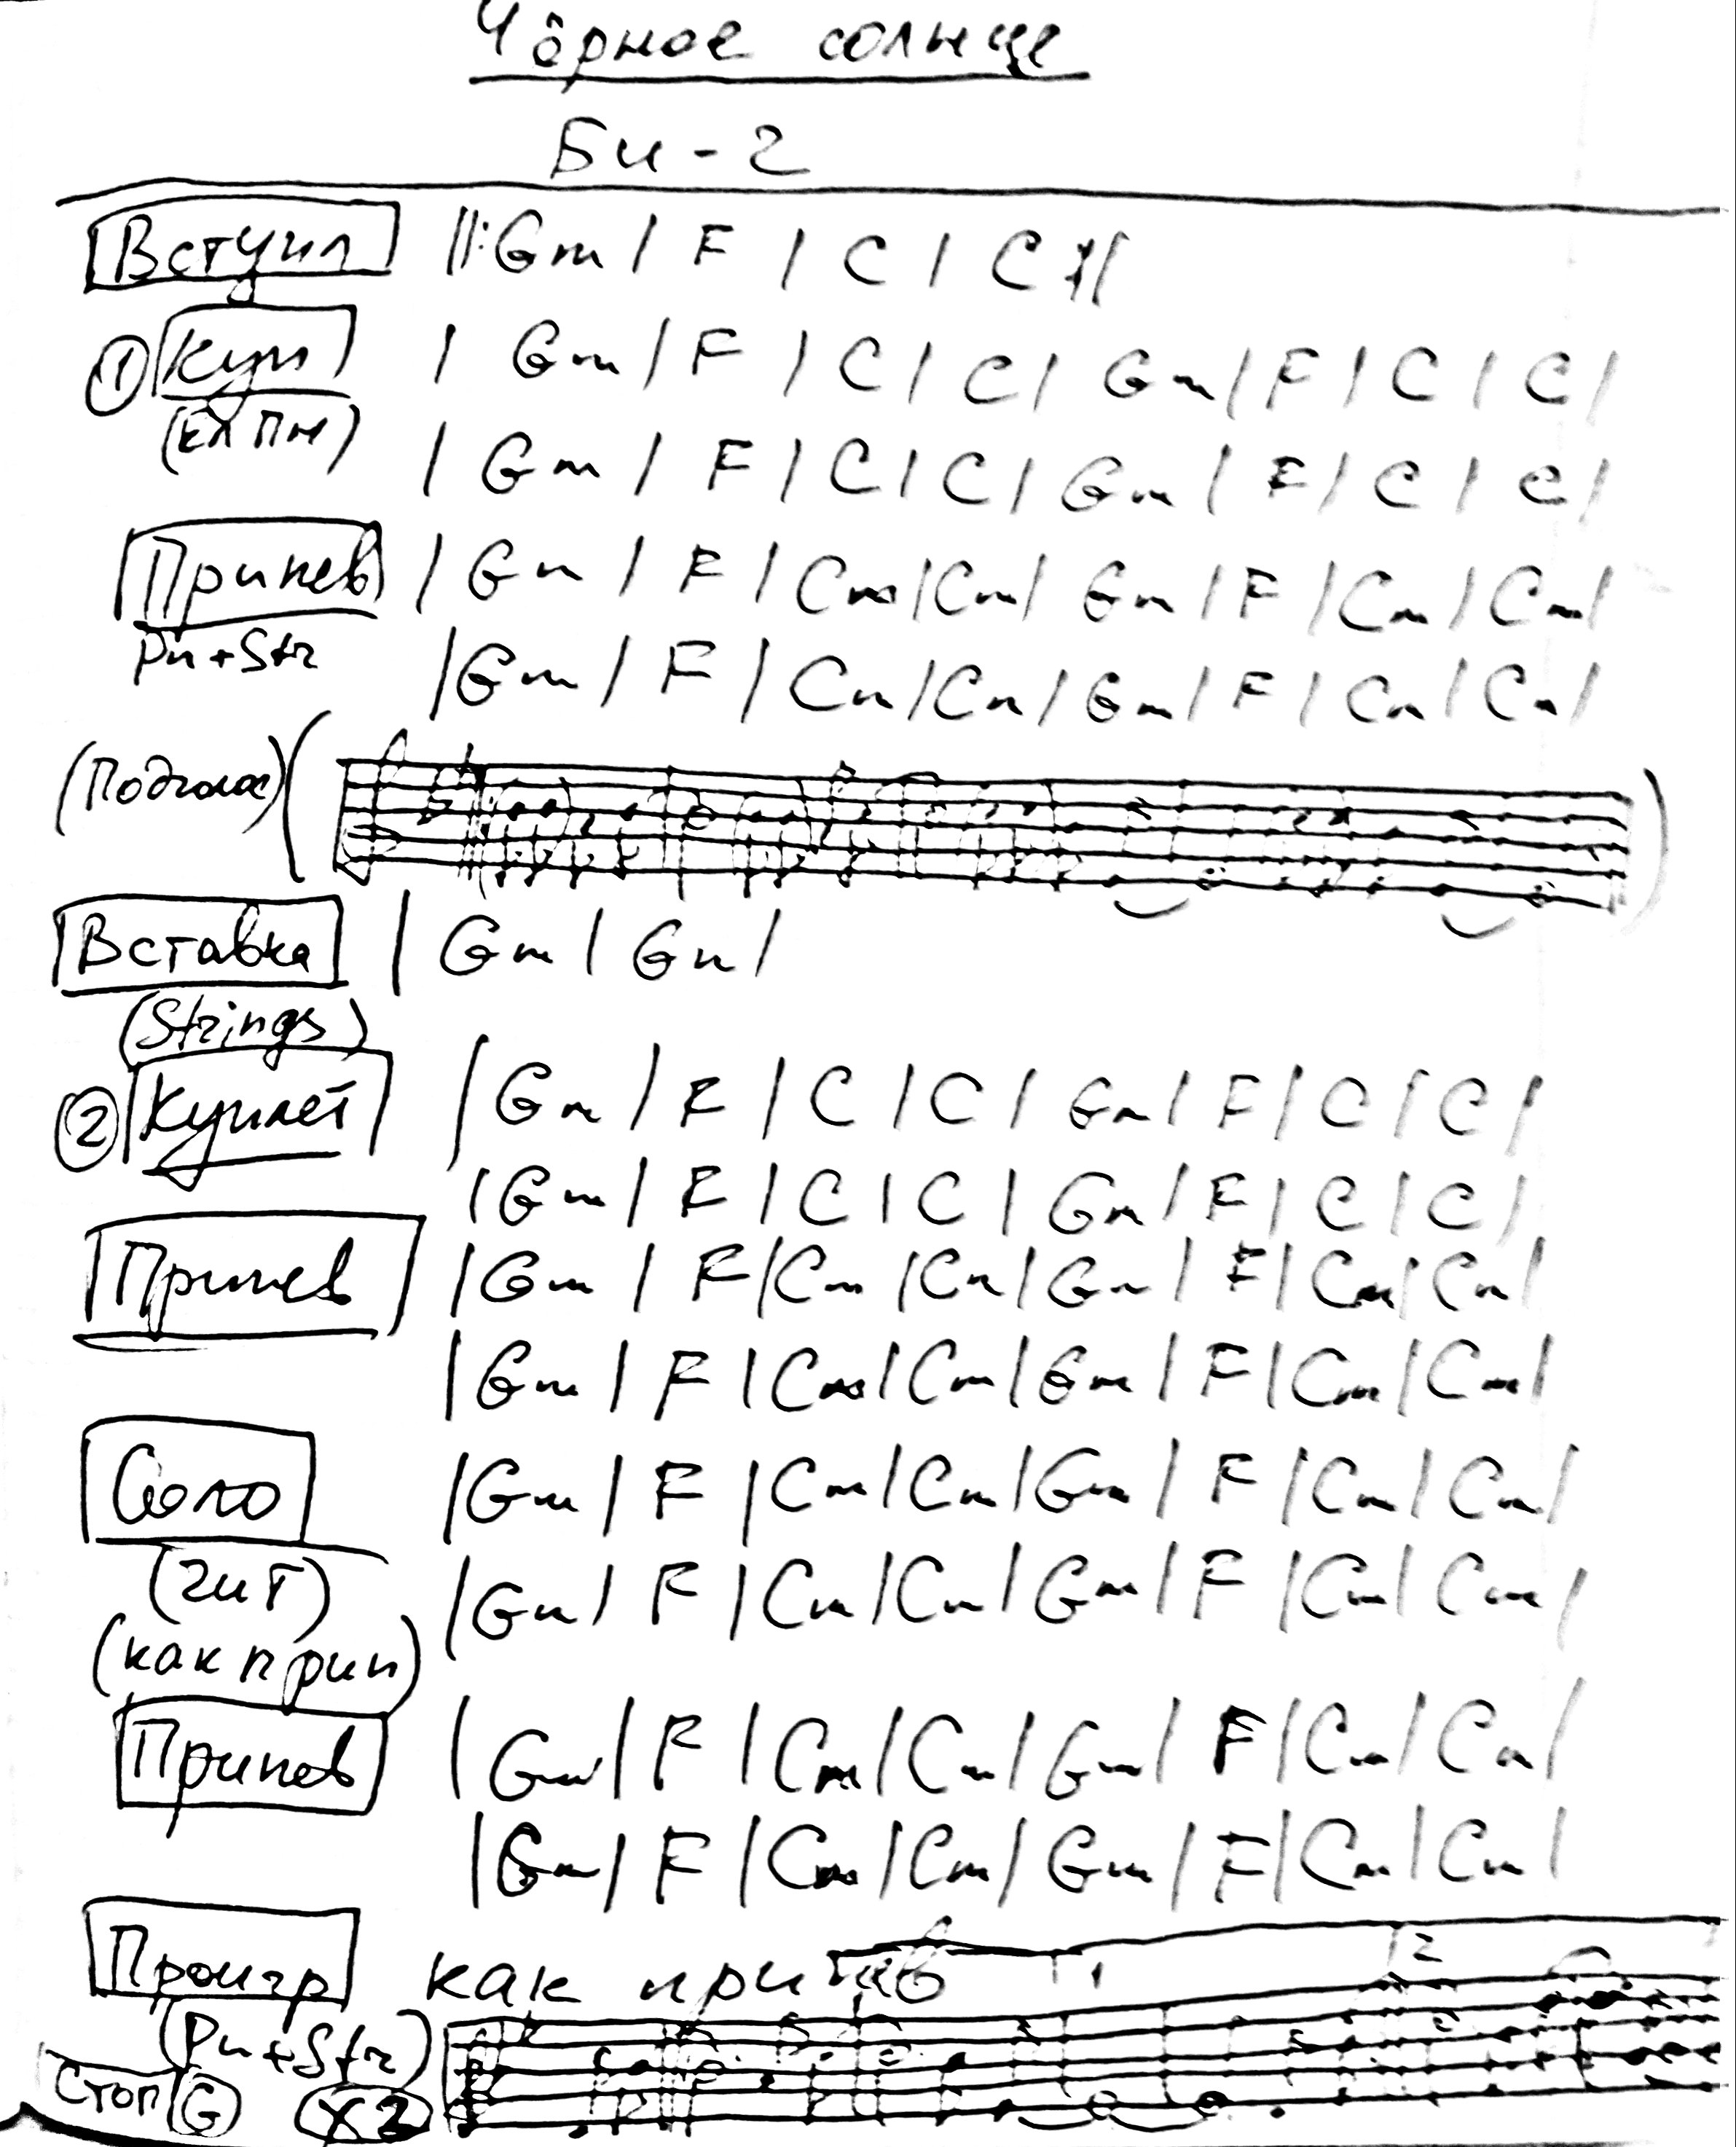 Чёрное солнце
Би-2
Вступл ||: Gm | F | C | C :||
① Куп | Gm | F | C | C | Gm | F | C | C |
(Эл Пн) | Gm | F | C | C | Gm | F | C | C |
Припев | Gm | F | Cm | Cm | Gm | F | Cm | Cm |
Pn + Str | Gm | F | Cm | Cm | Gm | F | Cm | Cm |
(Подголос)
Вставка | Gm | Gm |
(Strings)
② Куплет | Gm | F | C | C | Gm | F | C | C |
| Gm | F | C | C | Gm | F | C | C |
Припев | Gm | F | Cm | Cm | Gm | F | Cm | Cm |
| Gm | F | Cm | Cm | Gm | F | Cm | Cm |
Соло | Gm | F | Cm | Cm | Gm | F | Cm | Cm |
(гит) | Gm | F | Cm | Cm | Gm | F | Cm | Cm |
(как прип)
Припев | Gm | F | Cm | Cm | Gm | F | Cm | Cm |
| Gm | F | Cm | Cm | Gm | F | Cm | Cm |
Проигр как припев 1 2
(Pn + Str)
Стоп G x2